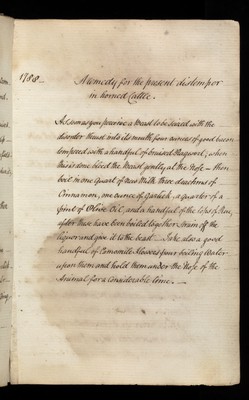 1788 —
A Remedy for the present distemper
in horned Cattle.
As soon as you perceive a Beast to be seized with the
disorder thrust into its mouth four ounces of good bacon
tempered with a handful of bruised Ragwort; when
this is done bleed the Beast gently at the Nose — then
boil in one Quart of new Milk three drachms of
Cinnamon, one ounce of Garlick, a quarter of a
pint of Olive Oil, and a handful of the tops of Rue,
after these have been boiled together strain off the
liquor and give it to the beast — Take also a good
handful of Camomile flowers pour boiling Water
upon them and hold them under the Nose of the
Animal for a considerable time. —